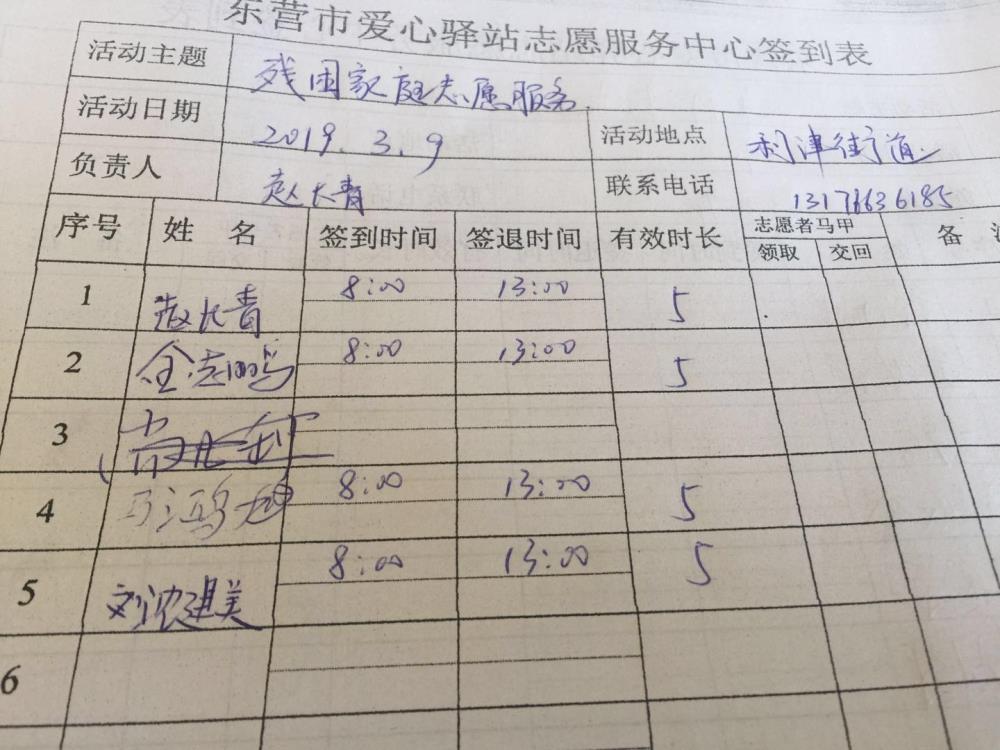 东营市爱心驿站志愿服务中心签到表
活动主题 残困家庭志愿服务
活动日期 2019.3.9 活动地点 利津街道
负责人 赵长青 联系电话 13176636185
序号 姓名 签到时间 签退时间 有效时长 志愿者马甲 备
领取 交回
1 赵长青 8:00 13:00 5
2 8:00 13:00 5
3
4 8:00 13:00 5
5 8:00 13:00 5
6